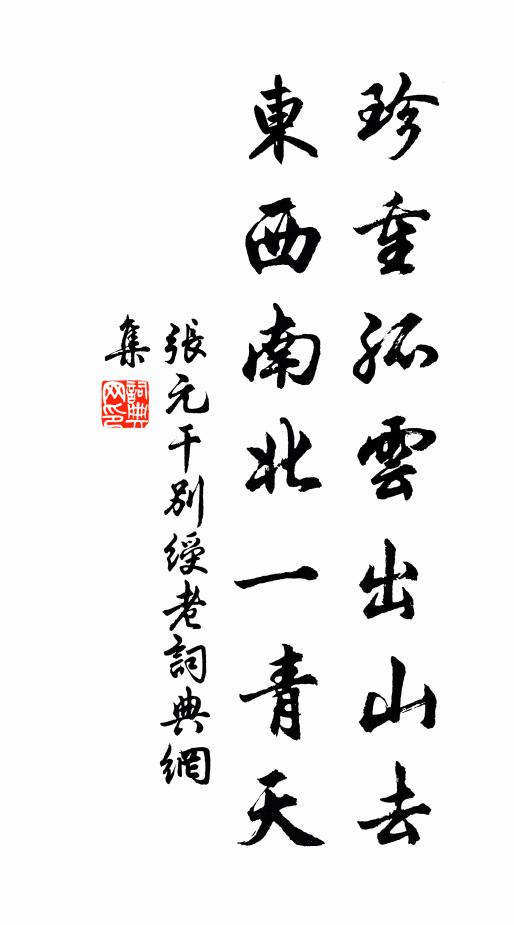 珍重孤雲出山去
東西南北一青天
張元干別綬老詞典網
集
詞典
网印